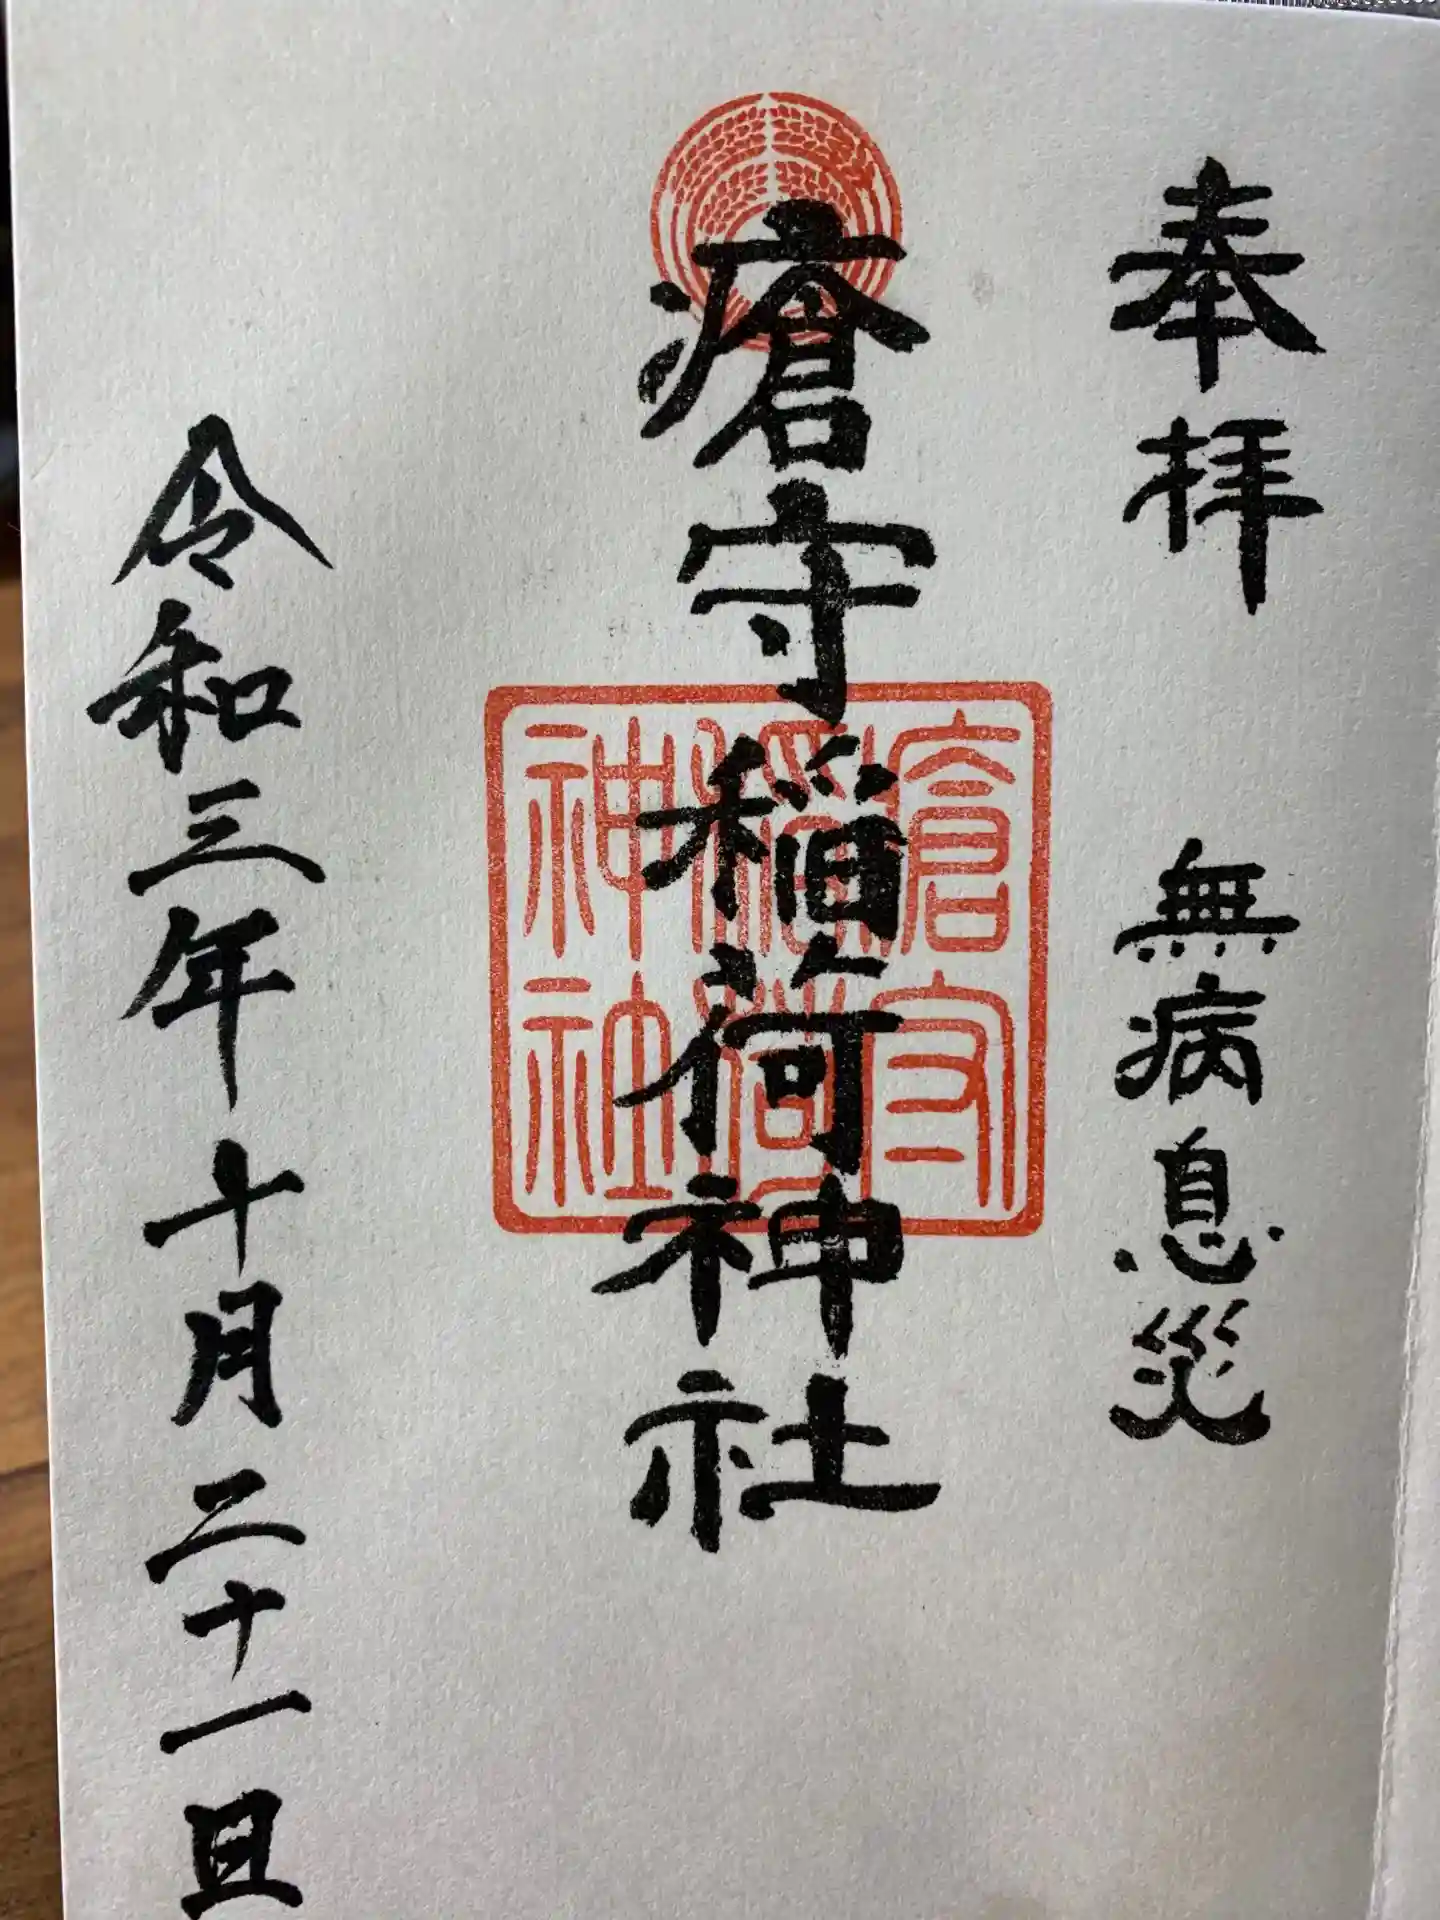 奉拝 無病息災
瘡守稲荷神社
瘡守稲荷神社
令和三年十月二十一日